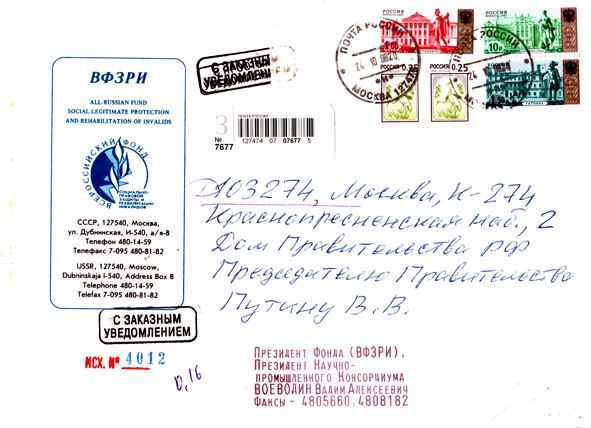 ВФЗРИ
ALL-RUSSIAN FUND
SOCIAL-LEGITIMATE PROTECTION
AND REHABILITATION OF INVALIDS
ВСЕРОССИЙСКИЙ ФОНД
СОЦИАЛЬНО-
ПРАВОВОЙ
ЗАЩИТЫ И
РЕАБИЛИТАЦИИ
ИНВАЛИДОВ
СССР, 127540, Москва,
ул. Дубнинская, И-540, а/я-8
Телефон 480-14-59
Телефакс 7-095 480-81-82
USSR, 127540, Moscow,
Dubninskaja I-540, Address Box 8
Telephone 480-14-59
Telefax 7-095 480-81-82
С ЗАКАЗНЫМ
УВЕДОМЛЕНИЕМ
ИСХ. № 4012
0,16
С ЗАКАЗНЫМ
УВЕДОМЛЕНИЕМ
ПОЧТА РОССИИ
З
№
7677
127474 07 07677 5
ПОЧТА РОССИИ
24 10
МОСКВА
РОССИЯ
РОССИЯ
10
РОССИЯ 0.25
РОССИЯ 0.25
РОССИЯ
ГАТЧИНА
103274, Москва, К-274
Краснопресненская наб., 2
Дом Правительства РФ
Председателю Правительства
Путину В.В.
Президент Фонда (ВФЗРИ),
Президент Научно-
промышленного Консорциума
ВОЕВОДИН Вадим Алексеевич
Факсы - 4805660, 4808182